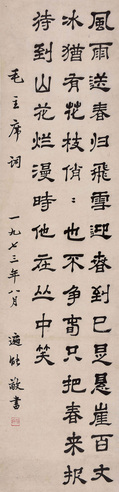 風雨送春归飛雪迎春到已是悬崖百丈
冰猶有花枝俏〻也不争春只把春来报
待到山花烂漫時他在丛中笑
毛主席词 一九七三年八月 遍能敬書